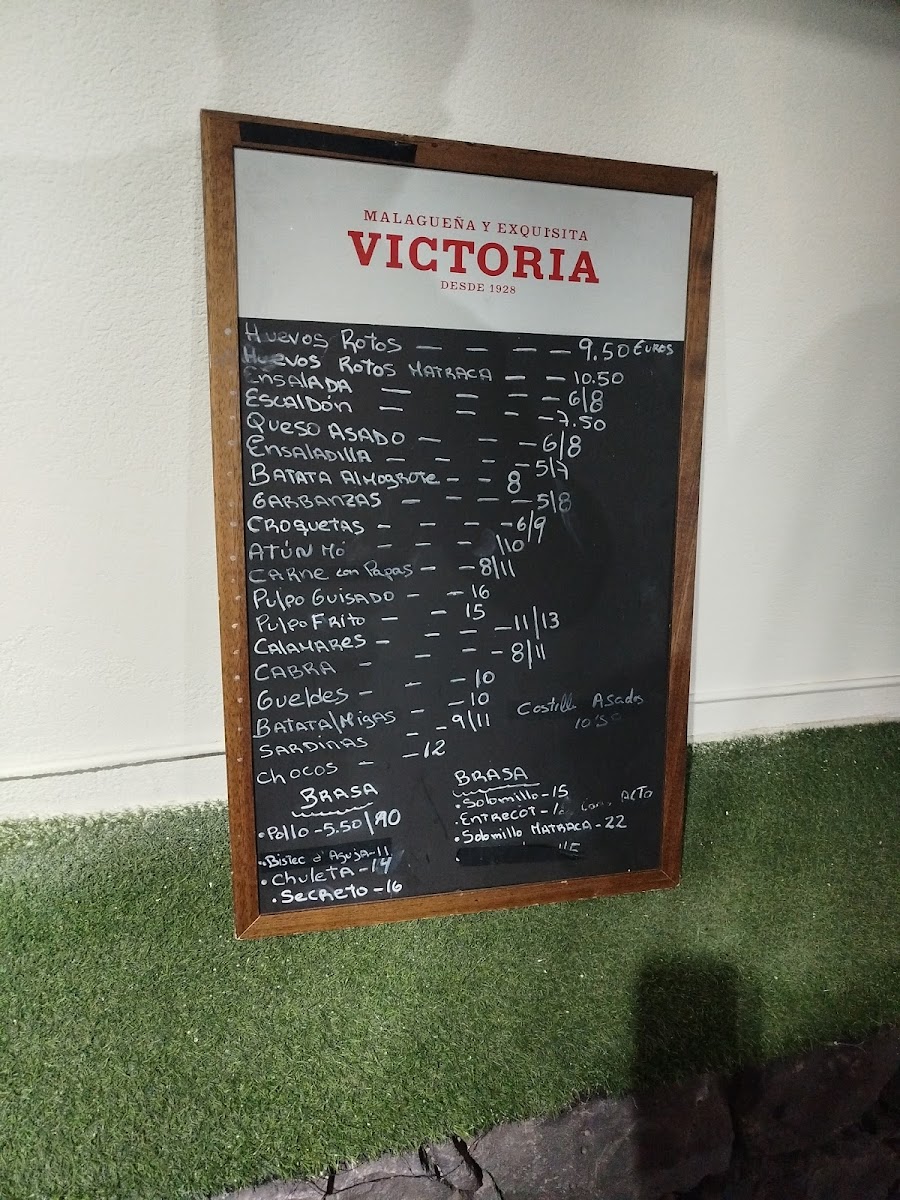 MALAGUEÑA Y EXQUISITA
VICTORIA
DESDE 1928
Huevos Rotos — — — — 9.50 Euros
Huevos Rotos MATRACA — — 10.50
Ensalada — — — — 6/8
Escaldón — — — — 7.50
Queso Asado — — — 6/8
Ensaladilla — — — — 5/7
Batata Almogrote — — 8
Garbanzas — — — — 5/8
Croquetas — — — — 6/9
Atún Mó — — — \10
Carne con Papas — — 8/11
Pulpo Guisado — — 16
Pulpo Frito — — 15
Calamares — — — — 11/13
Cabra — — — — 8/11
Gueldes — — — 10
Batata/Migas — — 10
Sardinas — — 9/11
Chocos — — 12
Costilla Asada
10'50
BRASA
• Pollo - 5.50/90
• Bistec d'Aguja - 11
• Chuleta - 14
• Secreto - 16
BRASA
• Solomillo - 15
• Entrecot -
• Solomillo MATRACA - 22